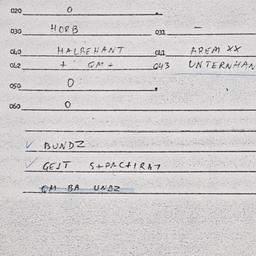 020 0
030 HORB 031 —
040 HALBEHANT 041 AREM XX
042 + GM + 043 UNTERNHAN
050 0
060 0
✓ BUNDZ
✓ GEST
GM BA UNDZ